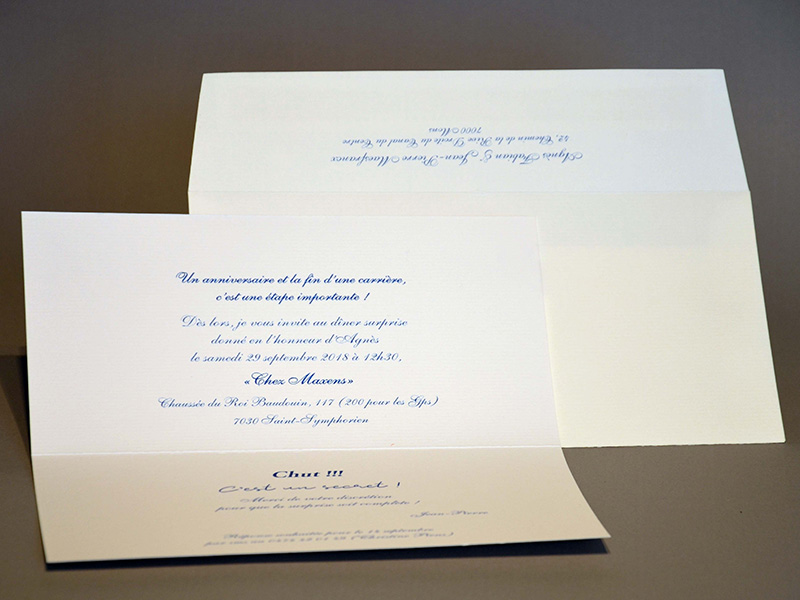 Un anniversaire et la fin d'une carrière,
c'est une étape importante !
Dès lors, je vous invite au dîner surprise
donné en l'honneur d'Agnès
le samedi 29 septembre 2018 à 12h30,
«Chez Maxens»
Chaussée du Roi Baudouin, 117 (200 pour les Gps)
7030 Saint-Symphorien
Chut !!!
C'est un secret !
Merci de votre discrétion
pour que la surprise soit complète !
Jean-Pierre
Réponse souhaitée pour le 14 septembre
par sms au (Christine
Agnès Fabian & Jean-Pierre
52, Chemin de la Rive Droite du Canal du Centre
7000 Mons